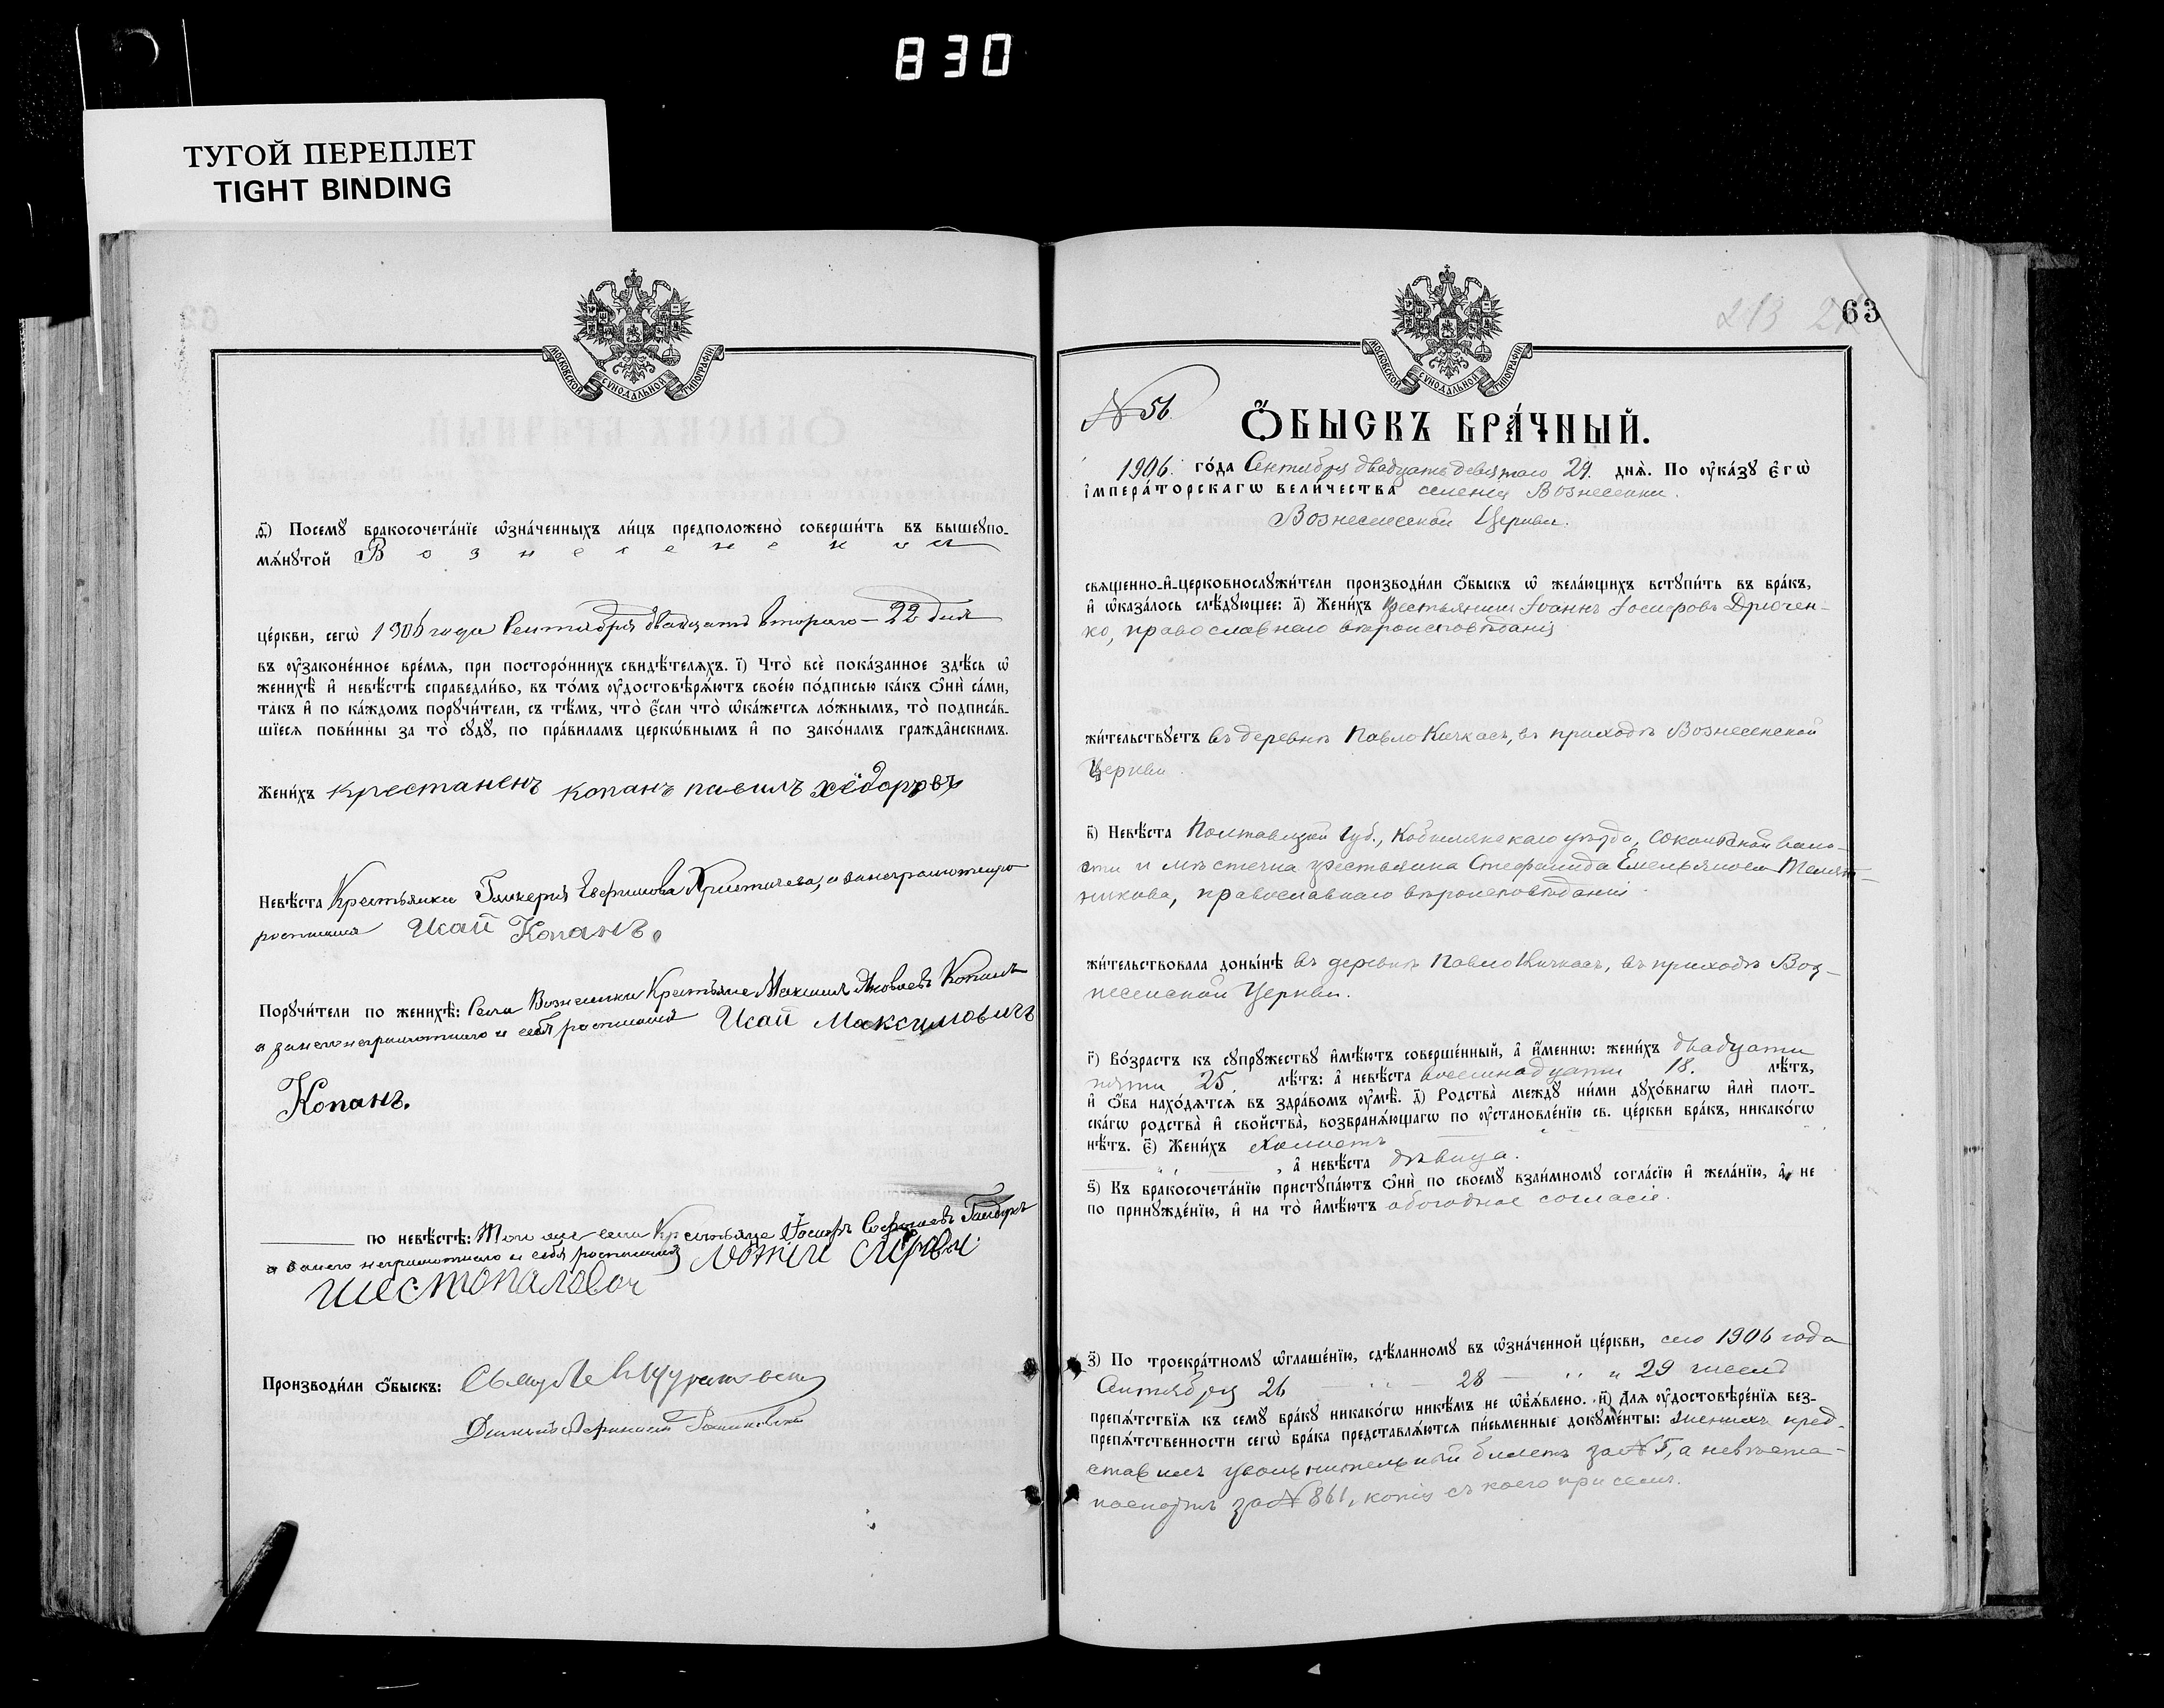 830
ТУГОЙ ПЕРЕПЛЕТ
TIGHT BINDING
МОСКОВСКОЙ СѴНОДАЛЬНОЙ ТИПОГРАФІИ
ѳ҃) Посемꙋ̀ бракосочета́нїе ѡ҆зна́ченныхъ ли́цъ предположено̀ соверши́ть въ вышеꙋпо-
мѧ́нꙋтой Вознесенской
це́ркви, сегѡ̀ 1906 года Сентября двадцать второго — 22 дня
въ ᲂу҆законе́нное вре́мѧ, при посторо́ннихъ свидѣ́телѧхъ. і҃) Что̀ всѐ пока́занное здѣ́сь ѡ҆
женихѣ̀ и҆ невѣ́стѣ справедли́во, въ то́мъ ᲂу҆достовѣрѧ́ютъ свое́ю по́дписью ка́къ ѻ҆нѝ са́ми,
та́къ и҆ по ка́ждомъ порꙋчи́тели, съ тѣ́мъ, что̀ є҆́сли что̀ ѡ҆ка́жетсѧ ло́жнымъ, то̀ подписа́в-
шїесѧ пови́нны за то̀ сꙋдꙋ̀, по пра́виламъ церкѡ́внымъ и҆ по зако́намъ гражда̂нскимъ.
Жени́хъ крестаненъ копанъ павилъ хёдоровъ
Невѣ́ста Крестьянка Гликерия Евфимова а за неграмотную
росписался Исай Копанъ.
Порꙋчи́тели по женихѣ̀: Села Вознесенки Крестьяне Максимъ Яковлевъ Копанъ
а за него неграмотного и себя росписался Исай Максимовичъ
Копанъ.
по невѣ́стѣ: Того же села Крестьяне Іосифъ
а за него неграмотного и себя росписался
Шестопаловъ
Производи́ли ѻ҆́быскъ: Свящ. Левъ
Дьячокъ
63
213
№ 56.
Ѻ҆́БЫСКЪ БРА́ЧНЫЙ.
1906. го́да Сентября двадцать девятаго 29. днѧ̀. По ᲂу҆ка́зꙋ є҆гѡ̀
і҆мпера́торскагѡ вели́чества селенія Вознесенки.
Вознесенской Церкви.
свѧще́нно-и҆-церковнослꙋжи́тели производи́ли ѻ҆́быскъ ѡ҆ жела́ющихъ встꙋпи́ть въ бра́къ,
и҆ ѡ҆каза́лось слѣ́дꙋющее: а҃) Жени́хъ крестьянинъ Іоаннъ Іосифовъ Дрючен-
ко, православнаго вѣроисповѣданія
жи́тельствꙋетъ въ деревнѣ ПавлоКичкасъ, въ приходѣ Вознесенской
Церкви.
в҃) Невѣ́ста Полтавской губ., Кобелякскаго уѣзда, Сокольской воло-
сти и мѣстечка крестьянка Стефанида Емельянова
православнаго вѣроисповѣданія.
жи́тельствовала доны́нѣ въ деревнѣ ПавлоКичкасъ, въ приходѣ Воз-
несенской Церкви.
г҃) Во́зрастъ къ сꙋпрꙋ́жествꙋ и҆мѣ́ютъ соверше́нный, а҆̀ и҆́меннѡ: жени́хъ двадцати
пяти 25. лѣ́тъ: а҆̀ невѣ́ста восемнадцати 18. лѣ́тъ,
и҆ ѻ҆́ба нахо́дѧтсѧ въ здра́вомъ ᲂу҆мѣ̀. д҃) Родства̀ междꙋ̀ ни́ми дꙋхо́внагѡ и҆лѝ плот-
ска́гѡ родства̀ и҆ сво́йства̀, возбранѧ́ющагѡ по ᲂу҆становле́нїю св. це́ркви бра́къ, никако́гѡ
нѣ́тъ. є҃) Жени́хъ холостъ
, а҆̀ невѣ́ста дѣвица.
ѕ҃) Къ бракосочета́нїю пристꙋпа́ютъ ѻ҆нѝ по своемꙋ̀ взаи́мномꙋ согла́сїю и҆ жела́нїю, а҆̀ не
по принꙋжде́нїю, и҆ на то̀ и҆мѣ́ютъ обоюдное согласіе.
з҃) По троекра́тномꙋ ѡ҆глаше́нїю, сдѣ́ланномꙋ въ ѡ҆зна́ченной це́ркви, сего 1906 года
Сентября 26 — „ — 28 — „ „ 29 числа
препѧ́тствїѧ къ семꙋ̀ бра́кꙋ никако́гѡ никѣ́мъ не ѡ҆б̾ѧ́влено. и҃) Длѧ̀ ᲂу҆достовѣре́нїѧ без-
препѧ́тственности сегѡ̀ бра́ка представлѧ́ютсѧ пи́сьменные докꙋме́нты: женихъ пред-
ставилъ увольнительный билетъ за № 5, а невѣста —
паспортъ за № 861, копія съ коего при семъ.